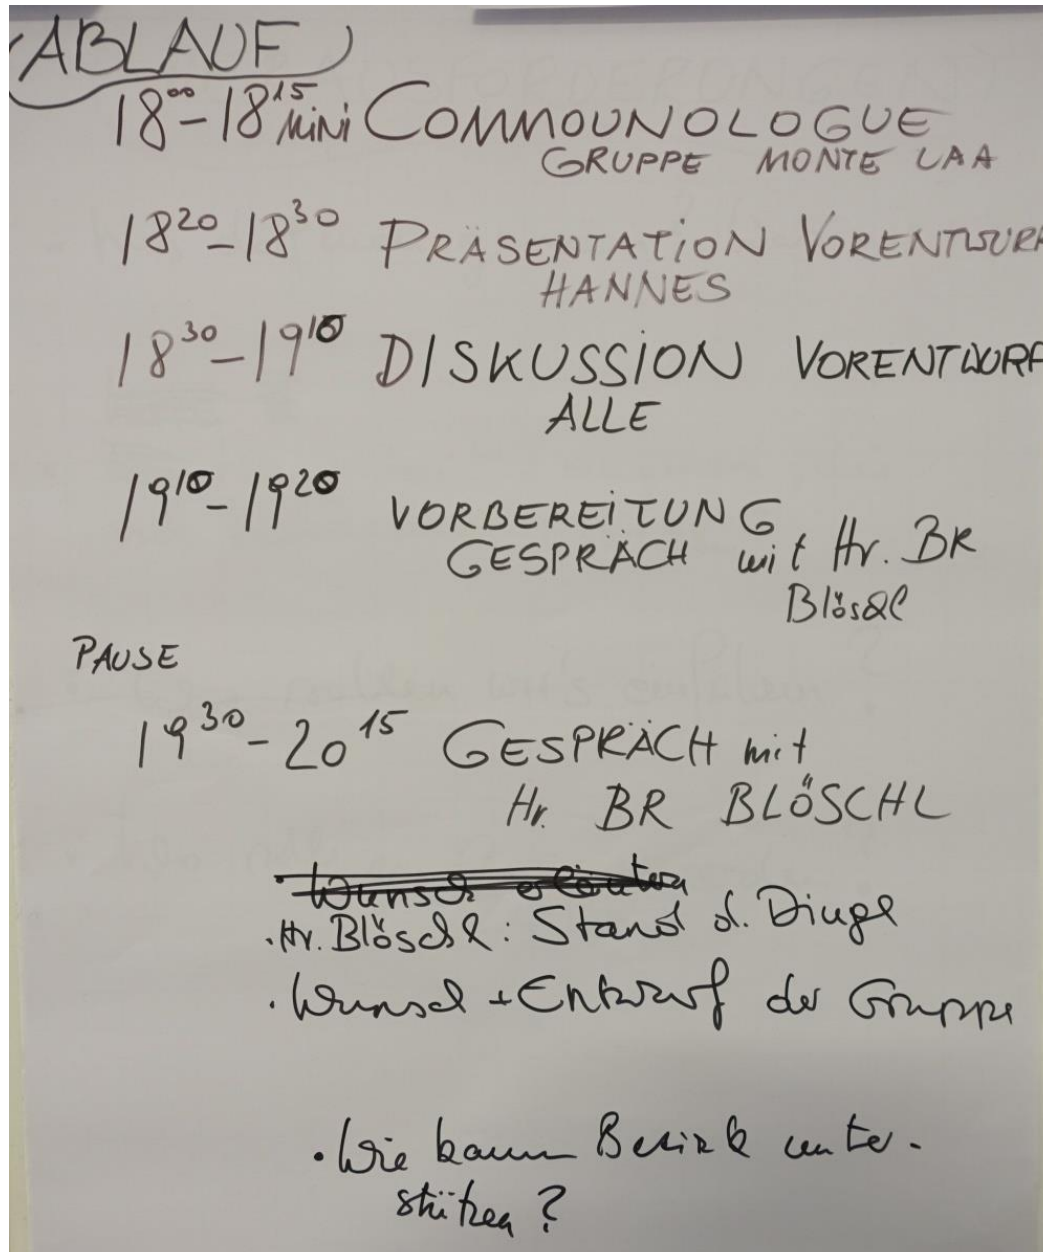 ABLAUF
18⁰⁰-18¹⁵ Mini COMMOUNOLOGUE
GRUPPE MONTE LAA
18²⁰-18³⁰ PRÄSENTATION VORENTWURF
HANNES
18³⁰-19¹⁰ DISKUSSION VORENTWURF
ALLE
19¹⁰-19²⁰ VORBEREITUNG
GESPRÄCH mit Hr. BR
Blöschl
PAUSE
19³⁰-20¹⁵ GESPRÄCH mit
Hr. BR BLÖSCHL
· Wunsch erläutern
· Hr. Blöschl: Stand d. Dinge
· Wunsch + Entwurf der Gruppe
· Wie kann Bezirk unter-
stützen?